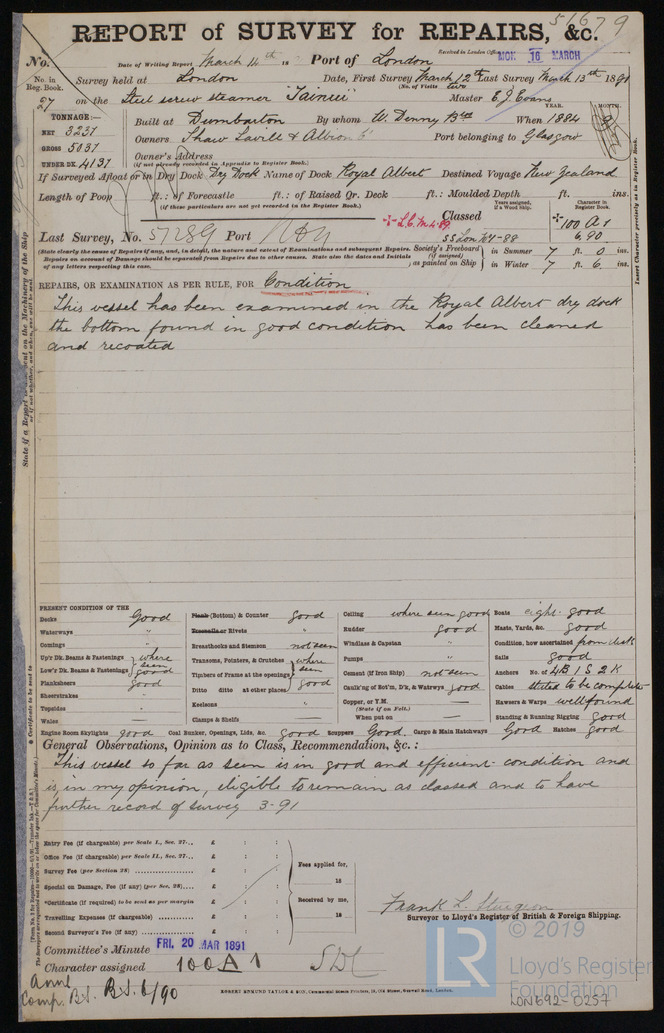 51679
REPORT of SURVEY for REPAIRS, &c.
No. Date of Writing Report March 14th 18 Port of London Received in London Office MON. 16 MARCH
No. in Reg. Book. Survey held at London Date, First Survey March 12th Last Survey March 13th 1891
(No. of Visits two)
27 on the Steel screw steamer "Tainui" Master E. J. Evans
TONNAGE:—
NET 3237
GROSS 5031
UNDER DK. 4137
Built at Dumbarton By whom W. Denny Bros When 1884
YEAR. MONTH.
Owners Shaw Savill & Albion Co Port belonging to Glasgow
Owner's Address
(if not already recorded in Appendix to Register Book.)
If Surveyed Afloat or in Dry Dock Dry Dock Name of Dock Royal Albert Destined Voyage New Zealand
Length of Poop ft.: of Forecastle ft.: of Raised Qr. Deck ft.: Moulded Depth ft. ins.
(if these particulars are not yet recorded in the Register Book.)
Classed
Years assigned, if a Wood Ship.
Character in Register Book.
+ L.C. M.4.89
+100 A 1
6,90
Last Survey, No. 57289 Port
SS Lon No 4-88
(State clearly the cause of Repairs if any, and, in detail, the nature and extent of Examinations and subsequent Repairs.
Repairs on account of Damage should be separated from Repairs due to other causes. State also the dates and Initials
of any letters respecting this case.
Society's Freeboard (if assigned) as painted on Ship
in Summer 7 ft. 0 ins.
in Winter 7 ft. 6 ins.
REPAIRS, OR EXAMINATION AS PER RULE, FOR Condition
This vessel has been examined in the Royal Albert dry dock
the bottom found in good condition has been cleaned
and recoated
PRESENT CONDITION OF THE
Decks Good
Waterways "
Comings "
Up'r Dk. Beams & Fastenings
Low'r Dk. Beams & Fastenings
where seen good
Planksheers good
Sheerstrakes "
Topsides "
Wales —
Plank (Bottom) & Counter good
Treenails or Rivets "
Breasthooks and Stemson not seen
Transoms, Pointers, & Crutches
Timbers of Frame at the openings
where seen good
Ditto ditto at other places
Keelsons "
Clamps & Shelfs —
Ceiling where seen good
Rudder good
Windlass & Capstan "
Pumps "
Cement (if Iron Ship) not seen
Caulk'ng of Bot'm, D'k, & Watrwys good
Copper, or Y.M. —
(State if on Felt.)
When put on —
Boats eight. good
Masts, Yards, &c. good
Condition, how ascertained from deck
Sails good
Anchors No. of 4B 1 S 2 K
Cables stated to be complete
Hawsers & Warps well found
Standing & Running Rigging good
Engine Room Skylights good Coal Bunker, Openings, Lids, &c. good Scuppers Good Cargo & Main Hatchways Good Hatches Good
General Observations, Opinion as to Class, Recommendation, &c. :
This vessel so far as seen is in good and efficient condition and
is, in my opinion, eligible to remain as classed and to have
further record of survey 3-91
Entry Fee (if chargeable) per Scale I., Sec. 27... £ : :
Office Fee (if chargeable) per Scale II., Sec. 27... £ : :
Survey Fee (per Section 28) £ : :
Special on Damage, Fee (if any) (per Sec. 28) £ : :
*Certificate (if required) to be sent as per margin £ : :
Travelling Expenses (if chargeable) £ : :
Second Surveyor's Fee (if any) £ : :
Fees applied for,
18
Received by me,
18
Frank L. Sturgeon
Surveyor to Lloyd's Register of British & Foreign Shipping.
Committee's Minute FRI. 20 MAR 1891
Character assigned 100 A 1
Annl
Comp. B.S. B.S. 6/90
ROBERT EDMUND TAYLOR & SON, Commercial Steam Printers, 19, Old Street, Goswell Road, London.
© 2019
LR
Lloyd's Register
Foundation
LON692-0257
Insert Character precisely as in Register Book.
* Certificate to be sent to